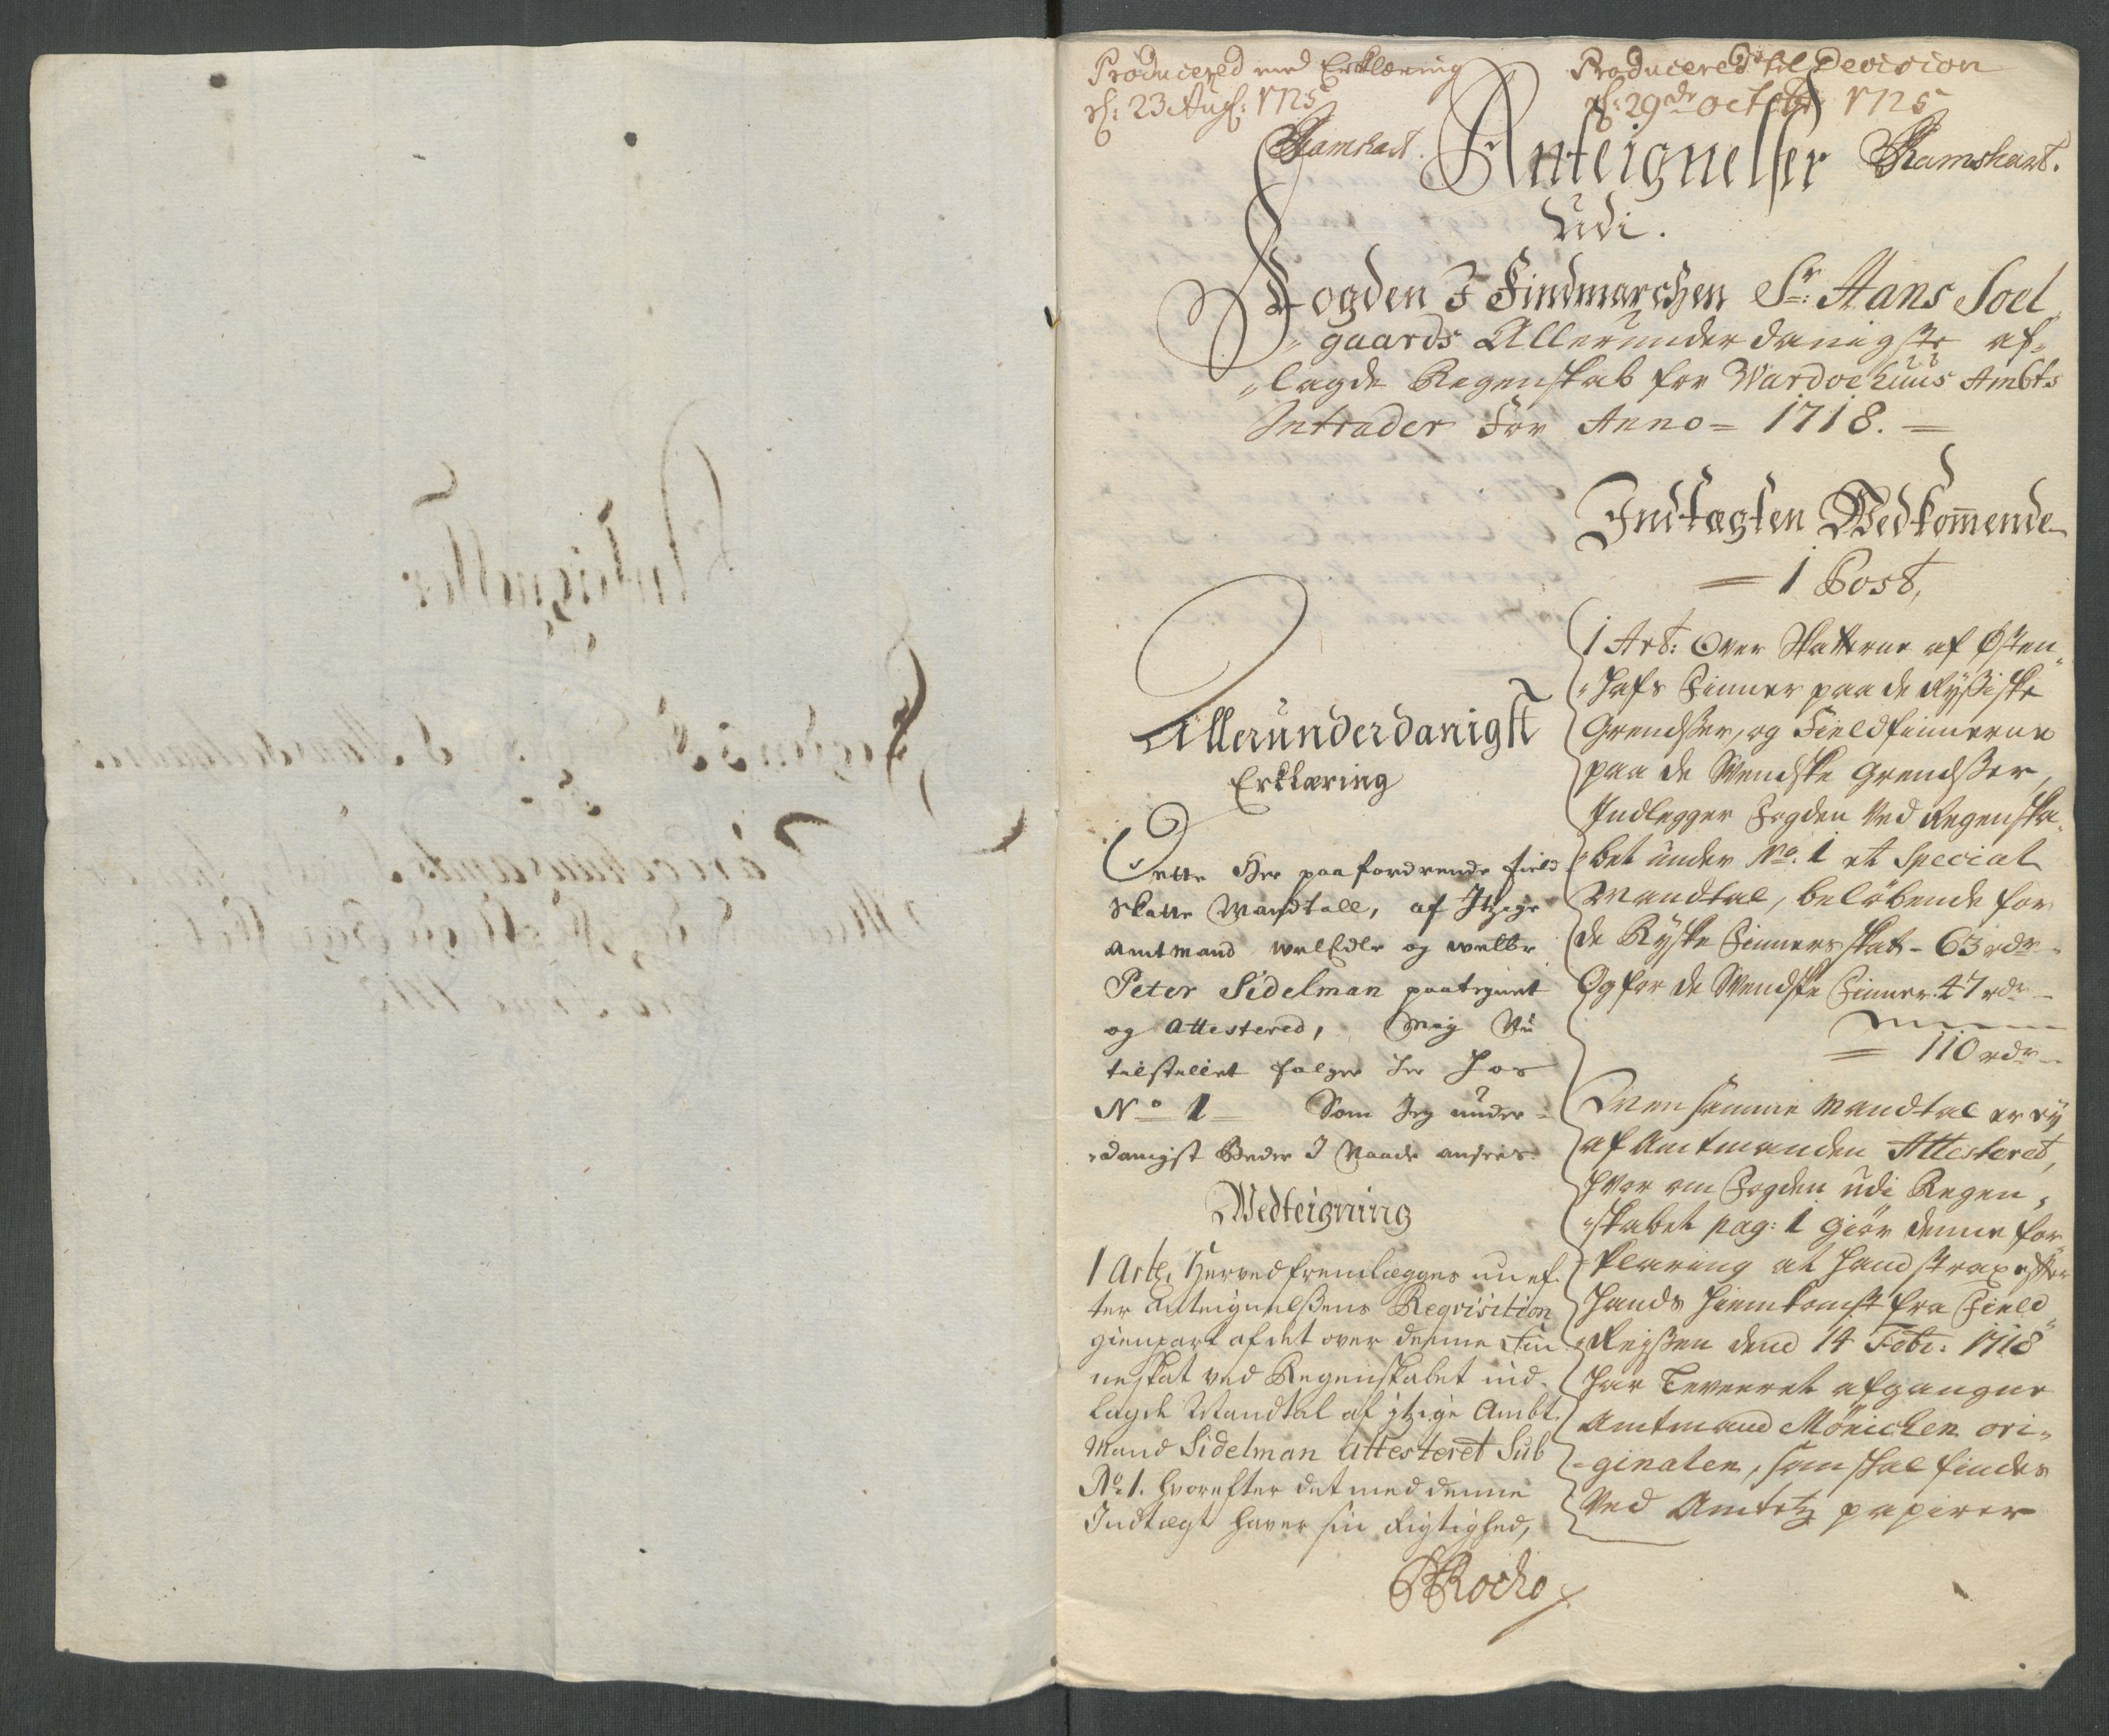 Producered med Erklæring
d: 23 Aug: 1725
Ramshart.
Producered til Decision
d: 29de octobr 1725
Ramshart.
Anteignelser
Udi.
Fogden I Findmarchen Sr: Hans Soel
gaards Allerunderdanigste af„
„lagde Regenskab for Wardoehuus Ambts
Intrader For Anno= 1718. =
Indtægten Vedkom̄ende
= 1 Post,
1 Art: Over Skatterne af Østen„
„hafs Finner paa de Ryssiske
Grendsser, og Fieldfinnerne
paa de Svendske Grendsser,
Indlegger Fogden ved Regenska„
„bet under No. 1 et Special
Mandtal, beløbende for
de Ryske Finners skat - 63 rdr -
Og for de Svendske Finner 47 rdr -
= 110 rdr -
Men samme Mandtal er ey
af Amtmanden Attesteret,
hvor om Fogden udi Regen„
„skabet pag: 1 giør denne for„
klaring at hand strax efter
hands hiemkomst fra Field„
„Reyssen dend 14 Febr: 1718
har Leveeret afgangne
Amtmand Mönichen ori„
„ginalen, som skal findes
ved Amtetz papirer
Allerunderdanigst
Erklæring
Dette Her paafordrende field
Skatte Mandtall, af Itzige
Amtmand welEdle og welbr
Peter Sidelman paategnet
og Attestered, Mig Nu
tilstellet følger her hos
No 1 Som Jeg under„
„danigst Beder I Naade ansees.
Vedteigning
1 Art. Herved fremlægges nu ef„
ter Anteignelssens Reqvisition
gienpart af det over denne Fin„
neskat ved Regenskabet ind„
lagde Mandtal af itzige Ambt„
mand Sidelman Attesteret Sub
No. 1. hvorefter det med denne
Indtægt haver sin Rigtighed,